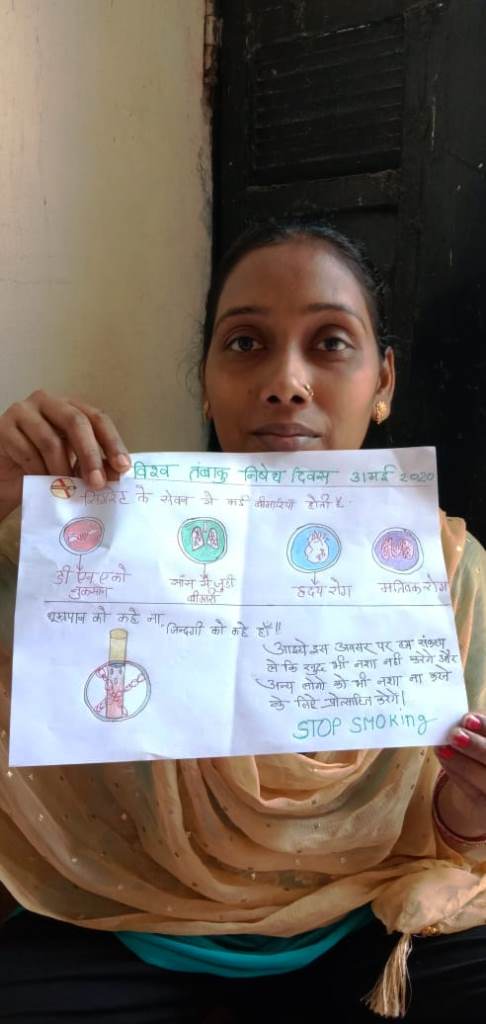 विश्व तंबाकु निषेध दिवस 31 मई 2020
सिगरेट के सेवन से कई बीमारियाँ होती है:
डी एन ए को
नुकसान
सांस से जुड़ी
बीमारी
हृदय रोग
मस्तिक रोग
धूम्रपान को कहे ना
"जिन्दगी को कहे हाँ"!!
आइये इस अवसर पर हम संकल्प
ले कि खुद भी नशा नही करेगे और
अन्य लोगो को भी नशा ना करने
के लिए प्रोत्साहित करेगे।
STOP SMOKing